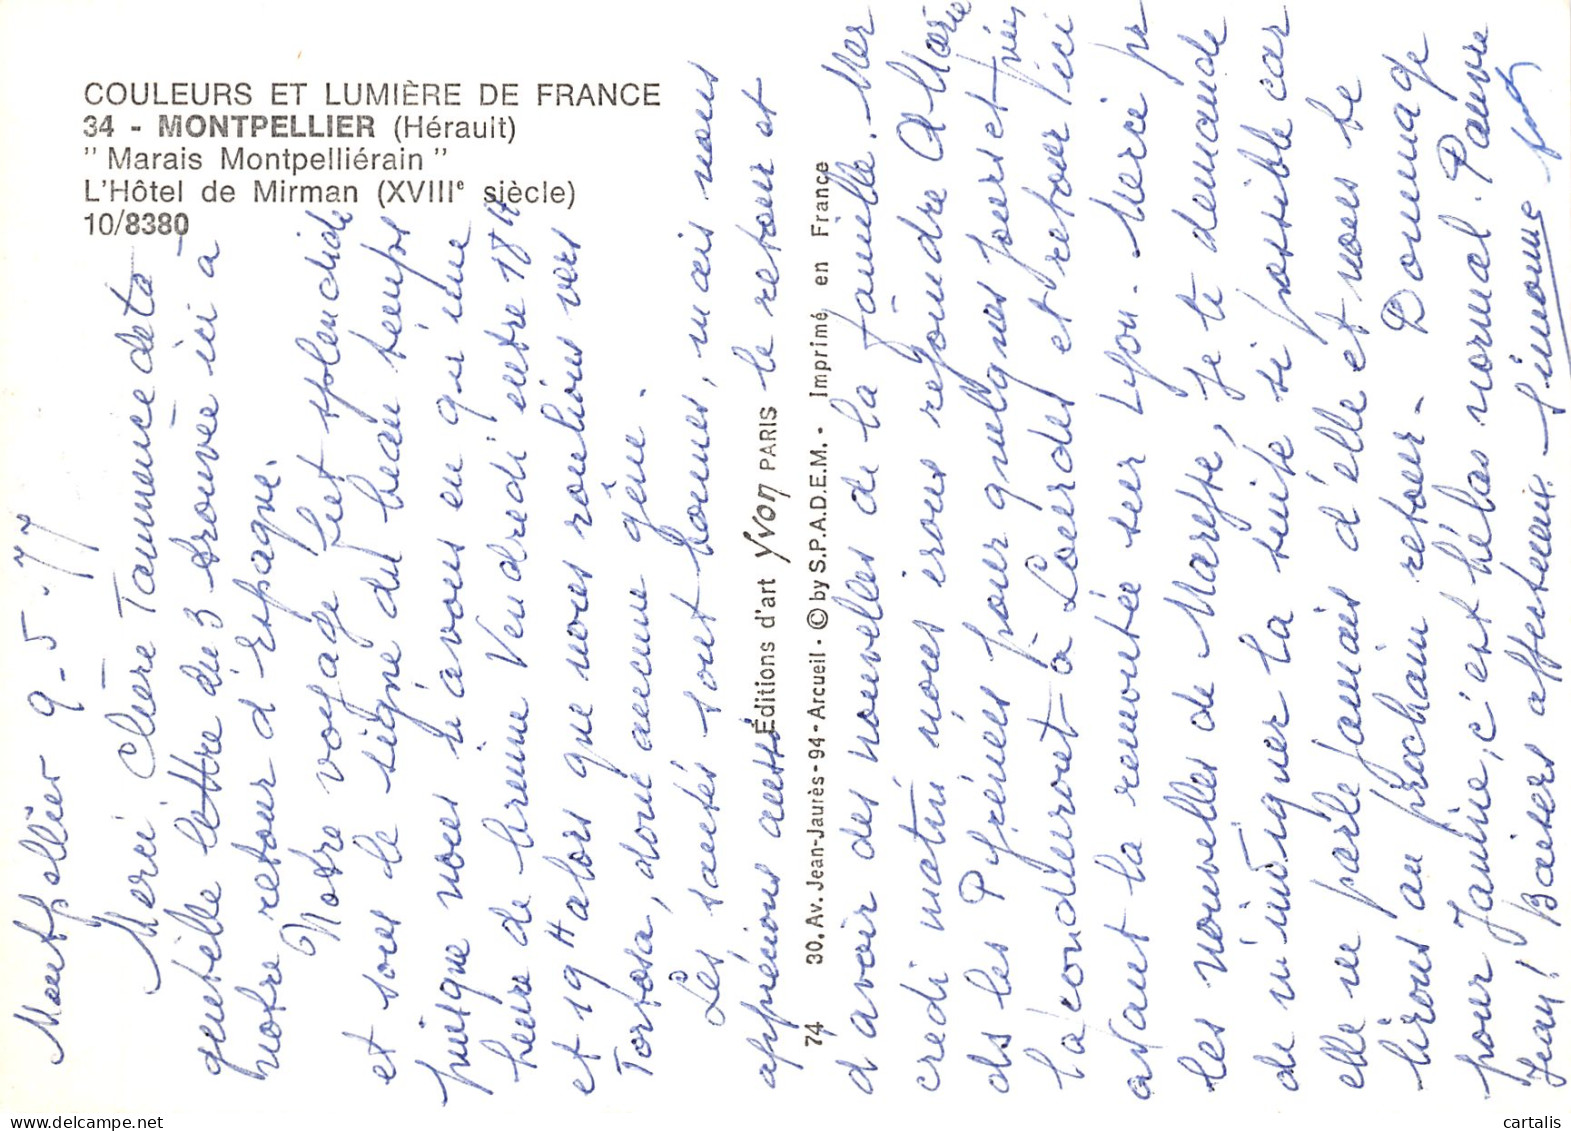 COULEURS ET LUMIÈRE DE FRANCE
34 - MONTPELLIER (Hérault)
" Marais Montpelliérain "
L'Hôtel de Mirman (XVIIIe siècle)
10/8380
Montpellier 9-5-77
Merci Chère Tammence de ta
gentille lettre du 3 trouvée ici à
notre retour d'Espagne.
Notre voyage fut splendide
et sous le signe du beau temps
puisque nous n'avons eu qu'une
heure de bruine Vendredi entre 18H
et 19H alors que nous roulions vers
Tortosa, donc aucune gêne.
Les santés sont bonnes, mais nous
apprécions aussi le retour et
d'avoir des nouvelles de la famille. Mer
credi matin nous irons rejoindre A Marie
ds les Pyrénées pour quelques jours et puis
la conduirons à Lourdes et retour ici
avant la remontée sur Lyon. Merci pr
les nouvelles de Maryse, je te demande
de m'indiquer la suite si possible car
elle ne parle jamais d'elle et nous be
lirons au prochain retour. Dommage
pour Janine, c'est hélas normal. Pauvre
Jean! Baisers affectueux. Simone
Éditions d'art Yvon PARIS
74 30, Av. Jean-Jaurès - 94 - Arcueil - © by S.P.A.D.E.M. - Imprimé en France
cartalis